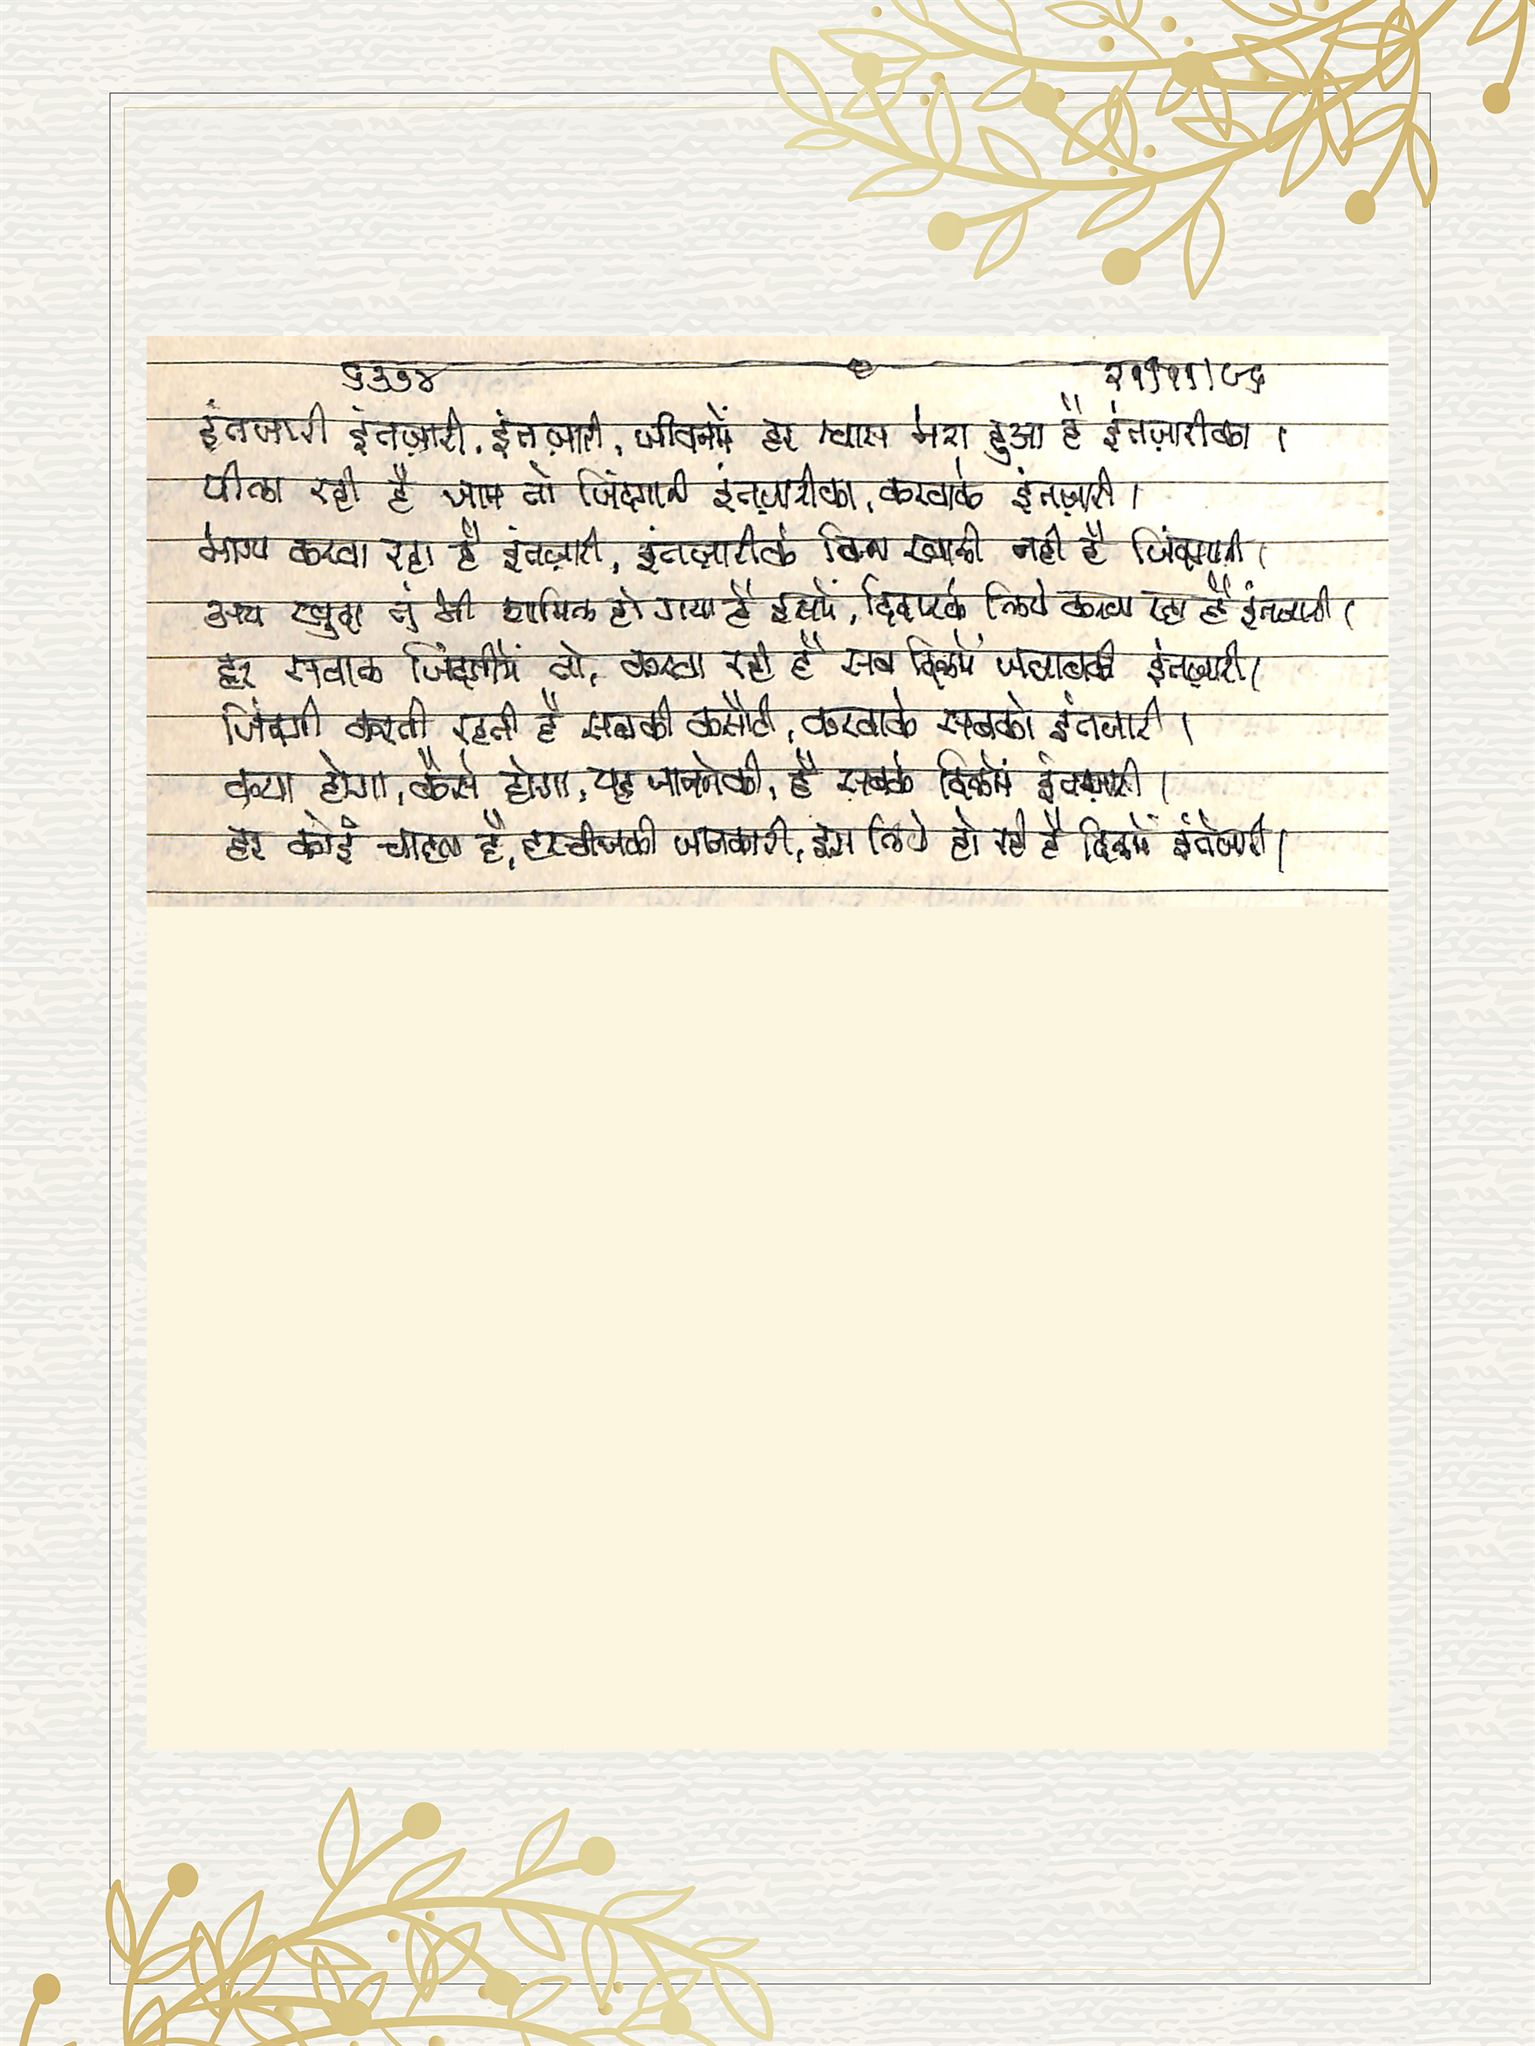 ६३७४ २११११।८६
इंतजारी इंतज़ारी, इंतज़ारी, जीवनमें हर श्वास भरा हुआ है इंतज़ारीका ।
पीला रही है जाम तो जिंदगानी इंतज़ारीका, करवाके इंतज़ारी ।
भाग्य करवा रहा है इंतज़ारी, इंतज़ारीके बिना खाली नही है जिंदगानी ।
अय खुदा तुं भी शामिल हो गया है इसमें, दिदारके लिये करवा रहा है इंतजारी ।
हर सवाल जिंदगीमें तो, करवा रही है सब दिलमें जवाबकी इंतज़ारी ।
जिंदगी करती रहती है सबकी कसौटी, करवाके सबको इंतजारी ।
कया होगा, कैसे होगा, यह जाननेकी, है सबके दिलमें इंतज़ारी ।
हर कोई चाहता है, हरचीजकी जानकारी, इस लिये हो रही है दिलमें इंतेजारी ।